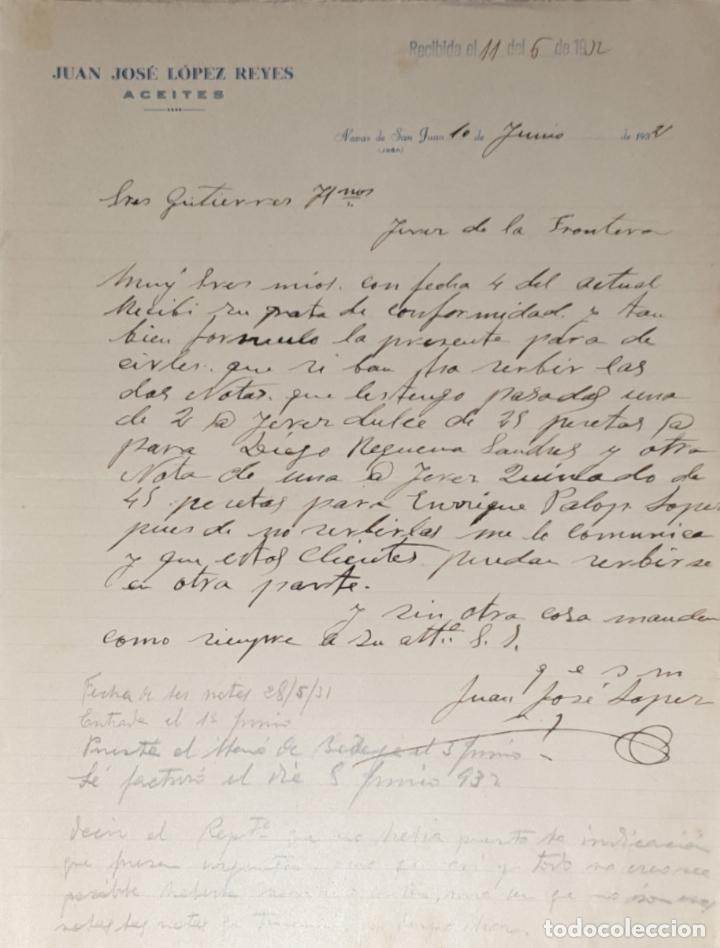 Recibida el 11 del 6 de 1932
JUAN JOSÉ LÓPEZ REYES
ACEITES
Navas de San Juan 10 de Junio de 1932
(JAÉN)
Sres Gutierres Hnos
Jerez de la Frontera
Muy Sres mios. con fecha 4 del actual
Recibi su grata de conformidad. y tan
bien formulo la presente para de
cirles. que si ban ha serbir las
dos Notas. que les tengo pasadas una
de 2 @ Jerez dulce de 25 pesetas @
para Diego Requena Sandres y otra
Nota de una @ Jerez Quinado de
45 pesetas para Enrrique Palop. Lopez
pues de no serbirlas me lo comunica
y que estos Clientes puedan serbirse
en otra parte.
y sin otra cosa manden
como siempre a su atto. S. S.
q e s m
Juan José Lopez
Fecha de las notas 28/5/31
Entrada el 1º Junio
Puesta el Menú de Bodega el 3 Junio
Sé facturó el dia 5 Junio 932
Decir el Repte que no había puesto la indicación
que no
notas